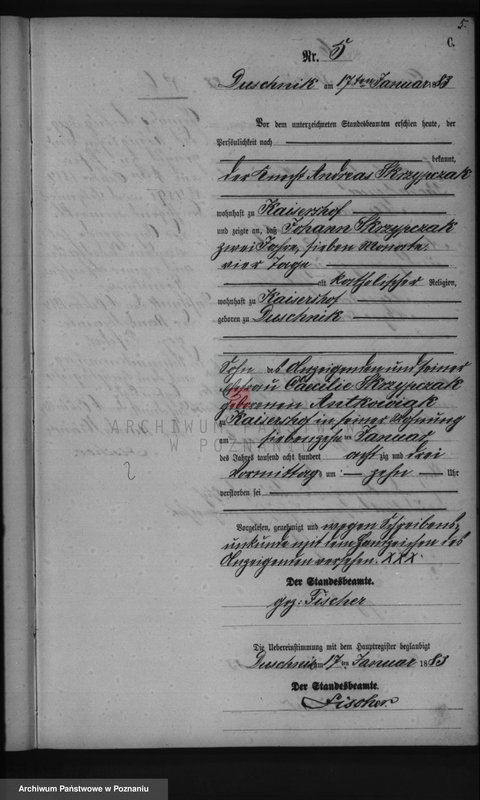 5.
C.
Nr. 5
Duschnik am 17ten Januar 1883
Vor dem unterzeichneten Standesbeamten erschien heute, der
Persönlichkeit nach
bekannt,
der Knecht Andreas Skrzypczak
wohnhaft zu Kaisershof
und zeigte an, daß Johann Skrzypczak
zwei Jahre, sieben Monate
vier Tage
alt katholischer Religion,
wohnhaft zu Kaisershof
geboren zu Duschnik
Sohn des Anzeigenden und seiner
Ehefrau Caecilie Skrzypczak
geborenen Antkowiak
zu Kaisershof in seiner Wohnung
am siebenzehnten Januar
des Jahres tausend acht hundert achtzig und drei
Vormittag um zehn Uhr
verstorben sei
Vorgelesen, genehmigt und wegen Schreibens-
unkunde mit dem Handzeichen des
Anzeigenden versehen. XXX.
Der Standesbeamte.
gez: Fischer
Die Uebereinstimmung mit dem Hauptregister beglaubigt
Duschnik am 17ten Januar 1883
Der Standesbeamte.
Fischer
ARCHIWUM PAŃSTWOWE
W POZNANIU
2
Archiwum Państwowe w Poznaniu